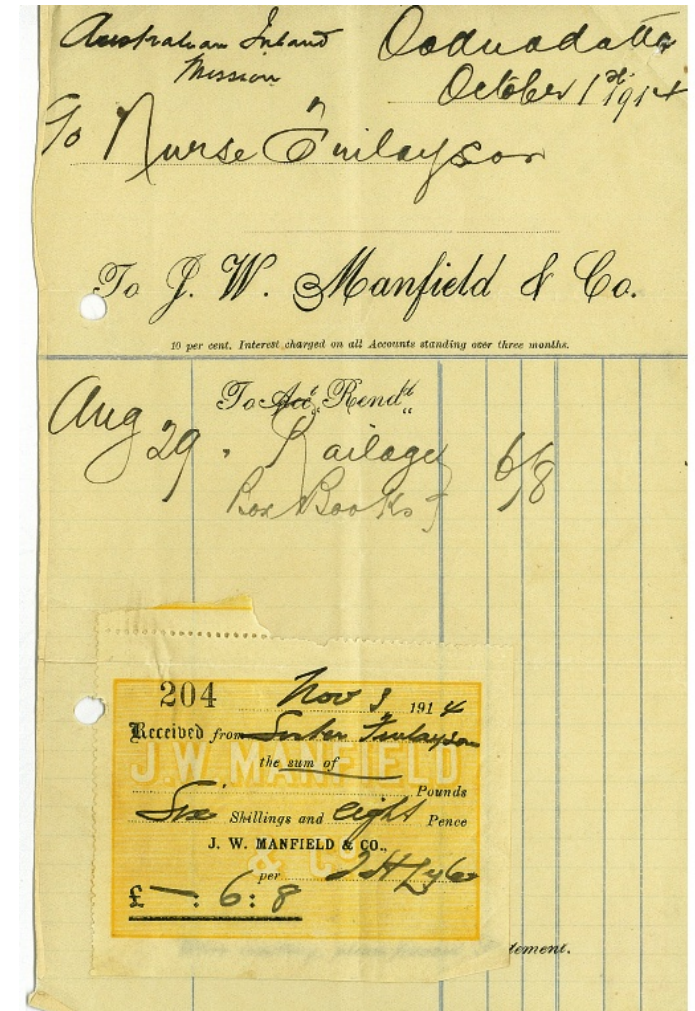 Australian Inland
Mission
Oodnadatta
October 1st 1914
To Nurse Finlayson
To J. W. Manfield & Co.
10 per cent. Interest charged on all Accounts standing over three months.
To Acct Rendd
Aug 29. Railage 6/8
Box Books
204 Nov 9 1914
Received from Sister Finlayson
the sum of
Pounds
Six Shillings and eight Pence
J. W. MANFIELD & CO.,
per
£ — : 6 : 8
J.W MANFIELD
& Co
tement.